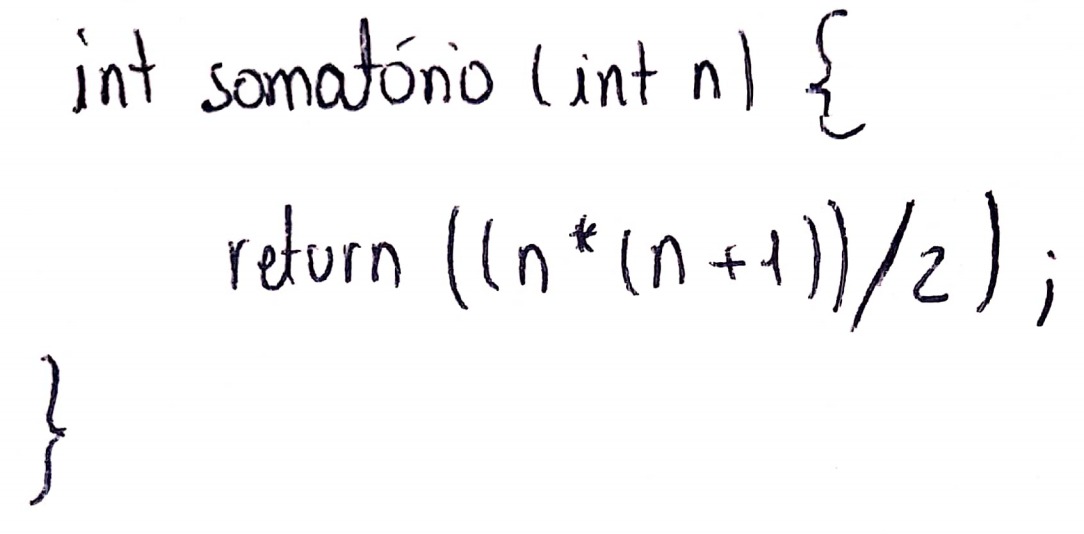 int somatório (int n) {
return ((n*(n+1))/2);
}